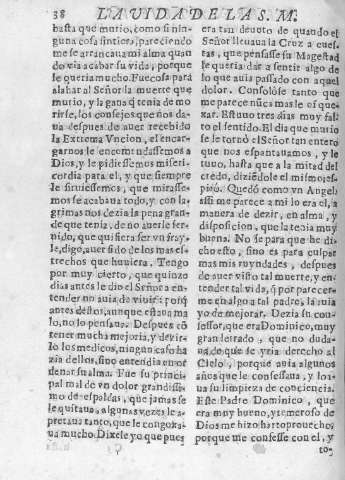 38 LA VIDA DE LA S. M.
hasta que murio, como si nin-
guna cosa sintiera, pareciendo
me se arrancaua mi alma quan
do via acabar su vida, porque
le queria mucho. Fue cosa para
alabar al Señor la muerte que
murio, y la gana q̃ tenia de mo
rirse, los consejos que nos da-
ua despues de auer recebido
la Extrema Vncion, el encar-
garnos le encomendassemos a
Dios, y le pidiessemos miseri-
cordia para el, y que siempre
le siruiessemos, que mirasse-
mos se acabaua todo, y con la-
grimas nos dezia la pena gran-
de que tenia, de no auerle ser-
uido, que quisiera ser vn fray-
le, digo, auer sido de los mas es-
trechos que huuiera. Tengo
por muy cierto, que quinze
dias antes le dio el Señor a en-
tender no auia de viuir: porq̃
antes destos, aunque estaua ma
lo, no lo pensaua. Despues cõ
tener mucha mejoria, y dezir-
lo los medicos, ningun caso ha
zia dellos, sino entendia en or
denar su alma. Fue su princi-
pal mal de vn dolor grandissi-
mo de espaldas, que jamas se
le quitaua, algunas vezes le a-
pretaua tanto, que le congoxa-
ua mucho. Dixele yo que pues
era tan deuoto de quando el
Señor lleuaua la Cruz a cues-
tas, que pensasse su Magestad
le queria dar a sentir algo de
lo que auia passado con aquel
dolor. Consolose tanto que
me parece nũca mas le oì que-
xar. Estuuo tres dias muy fal-
to el sentido. El dia que murio
se le tornò el Señor tan entero
que nos espantauamos, y le
tuuo, hasta que a la mitad del
credo, diziẽdole el mismo, es-
pirò. Quedò como vn Angel,
assi me parece a mi lo era el, a
manera de dezir, en alma, y
disposicion, que la tenia muy
buena. No sè para que he di-
cho esto, sino es para culpar
mas mis ruyndades, despues
de auer visto tal muerte, y en-
tender tal vida, q̃ por parecer-
me en algo a tal padre, la auia
yo de mejorar. Dezia su con-
fessor, que era Dominico, muy
gran letrado, que no duda-
ua de que se yria derecho al
Cielo, porque auia algunos
años que le confessaua, y loa-
ua su limpieza de conciencia.
Este Padre Dominico, que
era muy bueno, y temeroso de
Dios me hizo harto prouecho;
porque me confesse con el, y